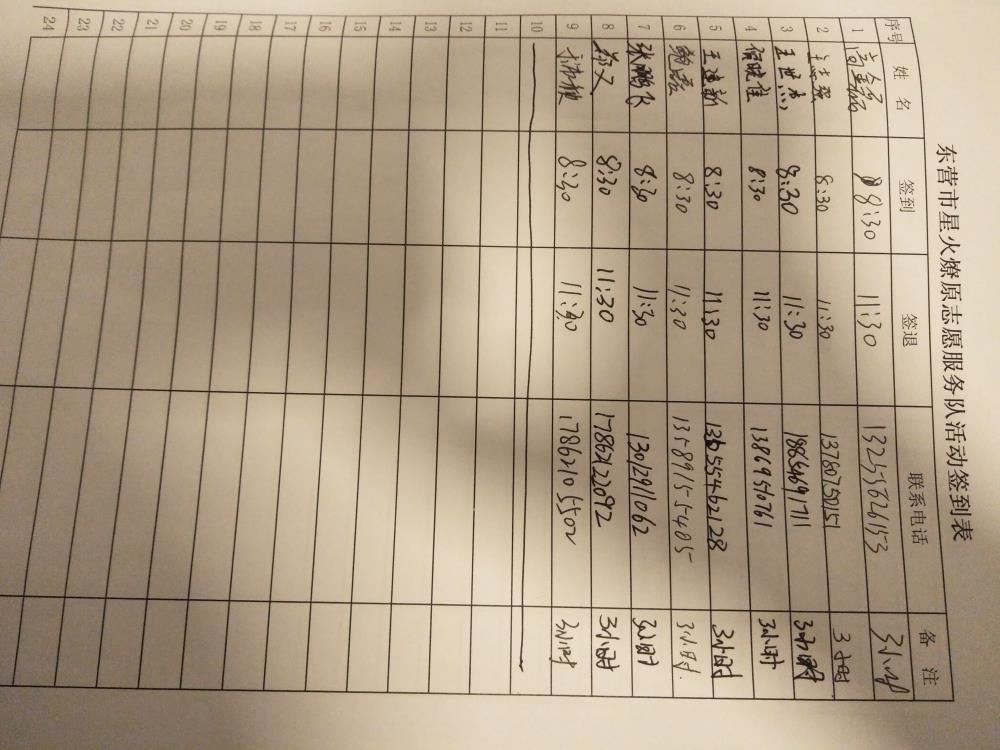 东营市星火燎原志愿服务队活动签到表
序号 姓 名 签到 签退 联系电话 备 注
1 8:30 11:30 13255626153 3小时
2 8:30 11:30 3小时
3 王世杰 8:30 11:30 18865469171 3小时
4 8:30 11:30 13869510761 3小时
5 王建新 8:30 11:30 13655462128 3小时
6 鲍磊 8:30 11:30 13589155405 3小时.
7 张鹏飞 8:30 11:30 13012911062 3小时
8 郑义 8:30 11:30 17862122092 3小时
9 8:30 11:30 17862105502 3小时
10
11
12
13
14
15
16
17
18
19
20
21
22
23
24